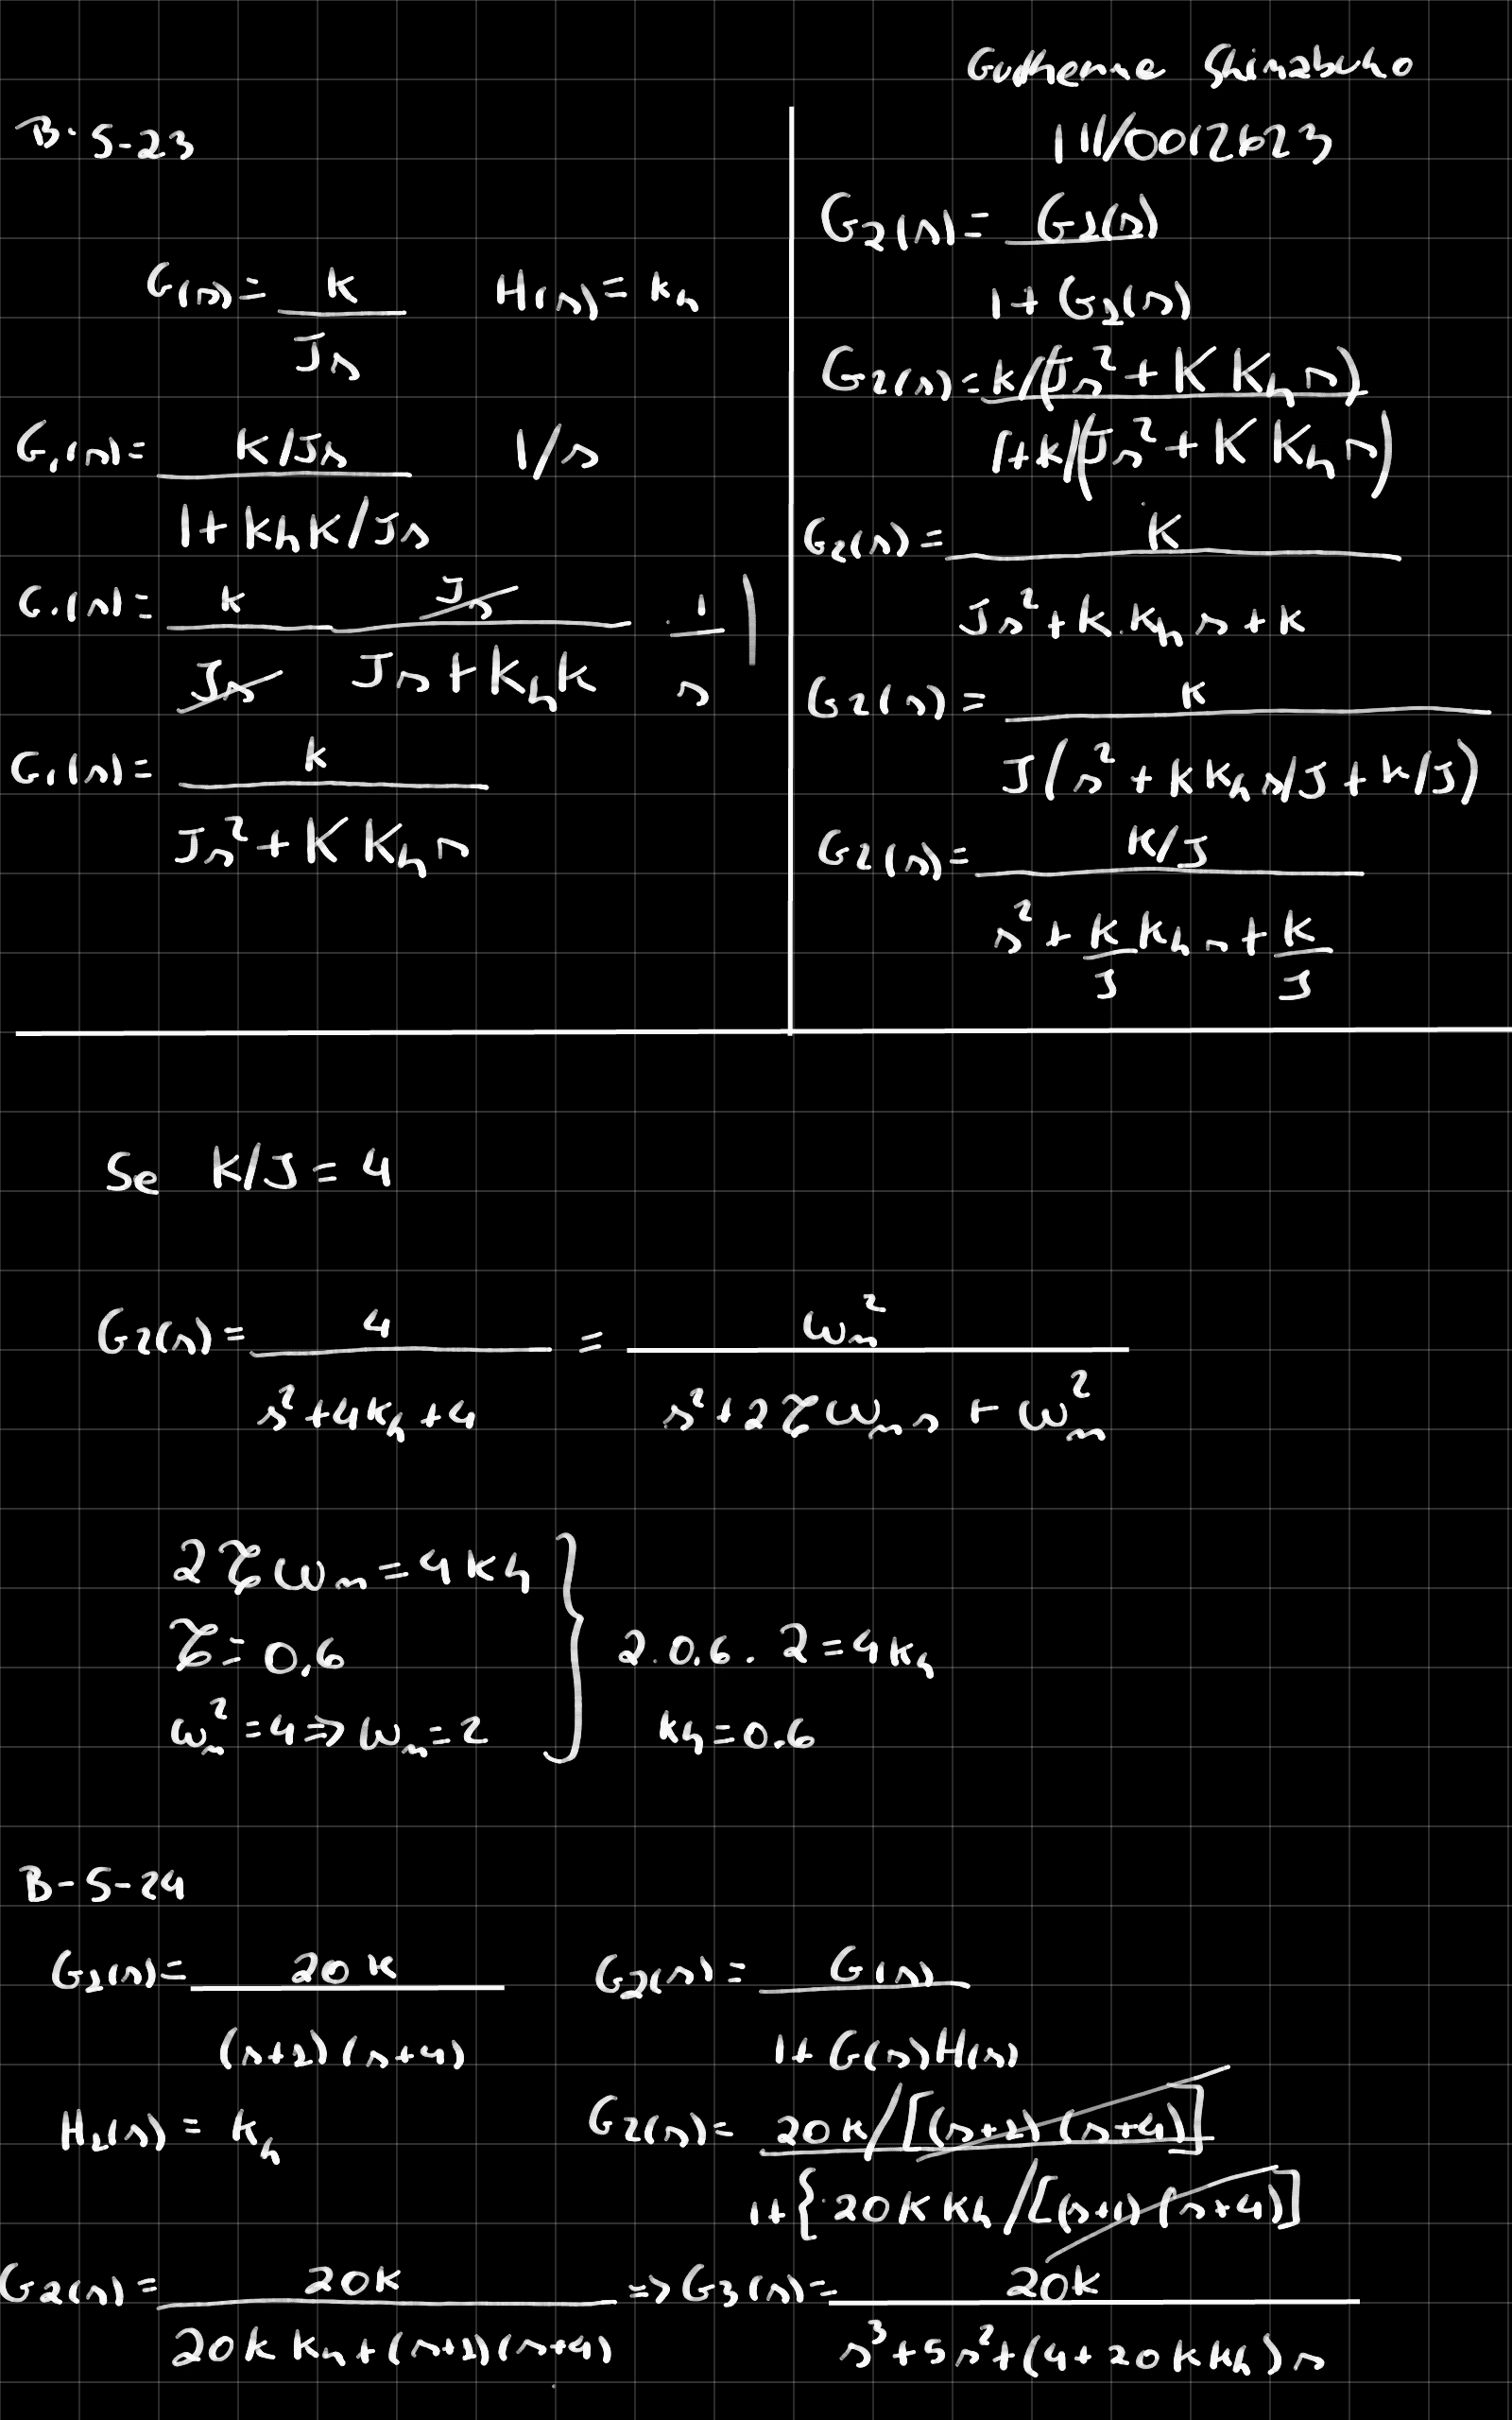 Guilherme Shimabuko
111/0012623
B-5-23
G(s) = K/Js H(s) = Kh
G1(s) = (K/Js)/(1+KhK/Js) 1/s
G1(s) = K/Js Js/(Js+KhK) . 1/s
G1(s) = K/(Js²+K Kh s)
G2(s) = G1(s)/(1+G1(s))
G2(s) = K/(Js²+K Kh s)/(1+K/(Js²+K Kh s))
G2(s) = K/(Js²+K.Kh s+K)
G2(s) = K/(J(s²+K Kh s/J+K/J))
G2(s) = (K/J)/(s²+K/J Kh s+K/J)
Se K/J = 4
G2(s) = 4/(s²+4Kh+4) = ωn²/(s²+2ζωn s+ωn²)
2ζωn = 4Kh
ζ = 0,6
ωn² = 4 => ωn = 2
2.0.6.2 = 4Kh
Kh = 0.6
B-5-24
G1(s) = 20K/((s+1)(s+4)) G2(s) = G(s)/(1+G(s)H(s))
H1(s) = Kh G2(s) = 20K/[(s+1)(s+4)]/(1+{20K Kh/[(s+1)(s+4)]
G2(s) = 20K/(20K Kh+(s+1)(s+4)) => G3(s) = 20K/(s³+5s²+(4+20K Kh)s)